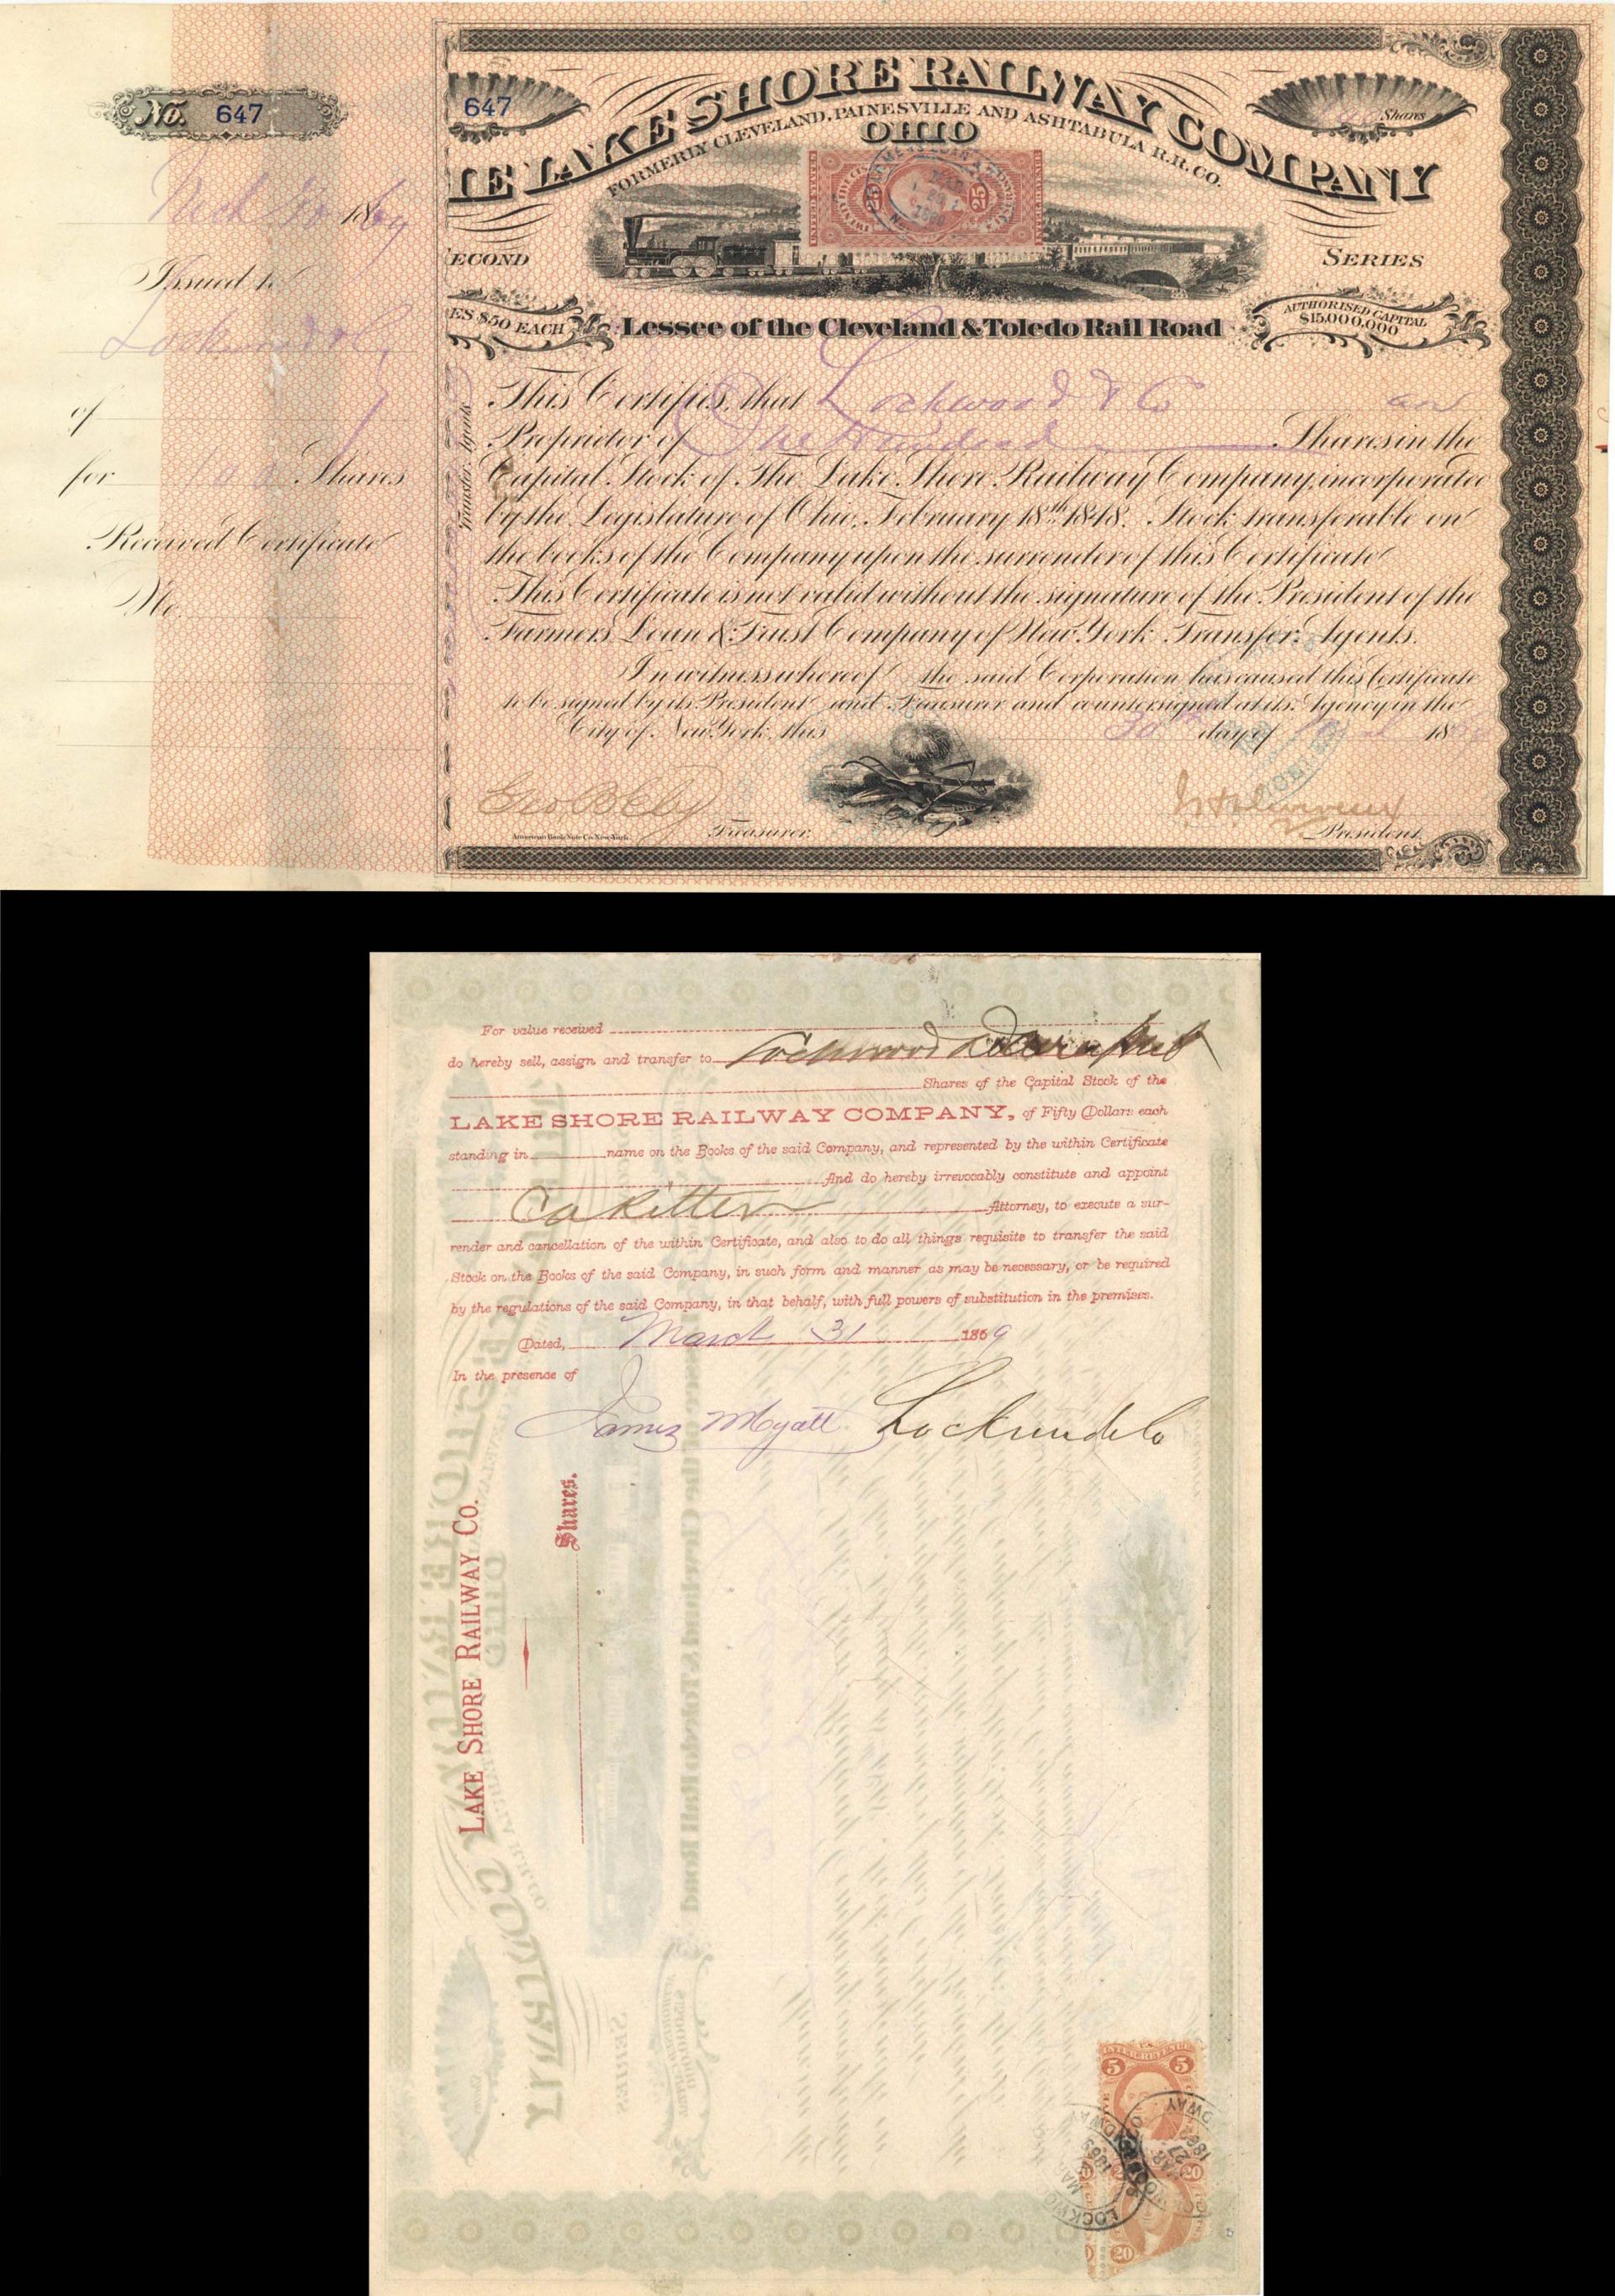 No. 647
Mch 30 1869
Issued to
Lockwood & Co
of
for 100 Shares
Received Certificate
No.
647
Shares
E LAKE SHORE RAILWAY COMPANY
FORMERLY CLEVELAND, PAINESVILLE AND ASHTABULA R.R. CO.
OHIO
25 25
ECOND
SERIES
ES $50 EACH
Lessee of the Cleveland & Toledo Rail Road
AUTHORISED CAPITAL
$15,000,000
Transfer Agents
This Certifies that Lockwood & Co are
Proprietor of One Hundred Shares in the
Capital Stock of The Lake Shore Railway Company, incorporated
by the Legislature of Ohio, February 18th 1848. Stock transferable on
the books of the Company upon the surrender of this Certificate
This Certificate is not valid without the signature of the President of the
Farmers Loan & Trust Company of New York Transfer Agents.
In witness whereof the said Corporation has caused this Certificate
to be signed by its President and Treasurer and countersigned at its Agency in the
City of New York, this 30th day of 18
Treasurer.
President.
American Bank Note Co. New York.
For value received
do hereby sell, assign and transfer to Lockwood & Davenport
Shares of the Capital Stock of the
LAKE SHORE RAILWAY COMPANY, of Fifty Dollars each
standing in name on the Books of the said Company, and represented by the within Certificate
And do hereby irrevocably constitute and appoint
Ritter Attorney, to execute a sur-
render and cancellation of the within Certificate, and also to do all things requisite to transfer the said
Stock on the Books of the said Company, in such form and manner as may be necessary, or be required
by the regulations of the said Company, in that behalf, with full powers of substitution in the premises.
Dated, March 31 1869
In the presence of
James Myatt Lockwood & Co
LAKE SHORE RAILWAY CO.
Shares.
INTER. REVENUE
5 5
20
20